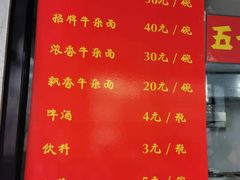 元/碗
招牌牛杂面 40元/碗
浓香牛杂面 30元/碗
飘香牛杂面 20元/碗
啤酒 4元/瓶
饮料 3元/瓶
五